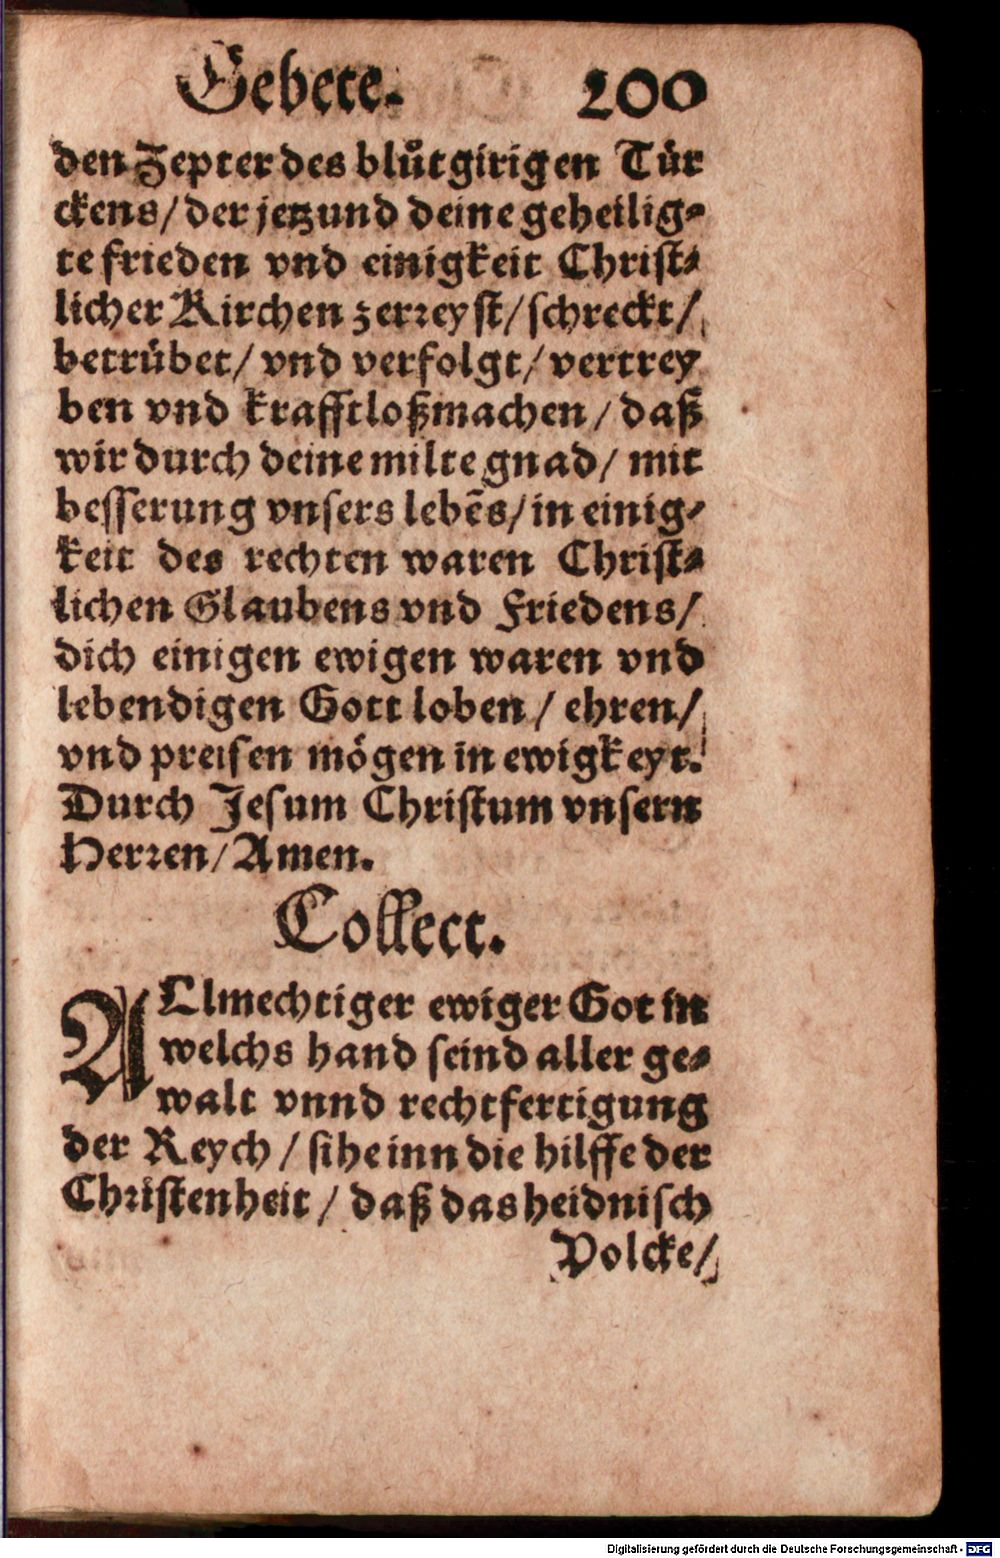 Gebete. 200
den Zepter des blůtgirigen Tür
ckens/ der jetzund deine geheilig⸗
te frieden vnd einigkeit Christ⸗
licher Kirchen zerreyst/ schreckt/
betrübet/ vnd verfolgt/ vertrey
ben vnd krafftloßmachen/ daß
wir durch deine milte gnad/ mit
besserung vnsers lebēs/ in einig⸗
keit des rechten waren Christ⸗
lichen Glaubens vnd Friedens/
dich einigen ewigen waren vnd
lebendigen Gott loben/ ehren/
vnd preisen mögen in ewigkeyt.
Durch Jesum Christum vnsern
Herren/ Amen.
Collect.
ALlmechtiger ewiger Got in
welchs hand seind aller ge⸗
walt vnnd rechtfertigung
der Reych/ sihe inn die hilffe der
Christenheit/ daß das heidnisch
Volcke/
Digitalisierung gefördert durch die Deutsche Forschungsgemeinschaft - DFG